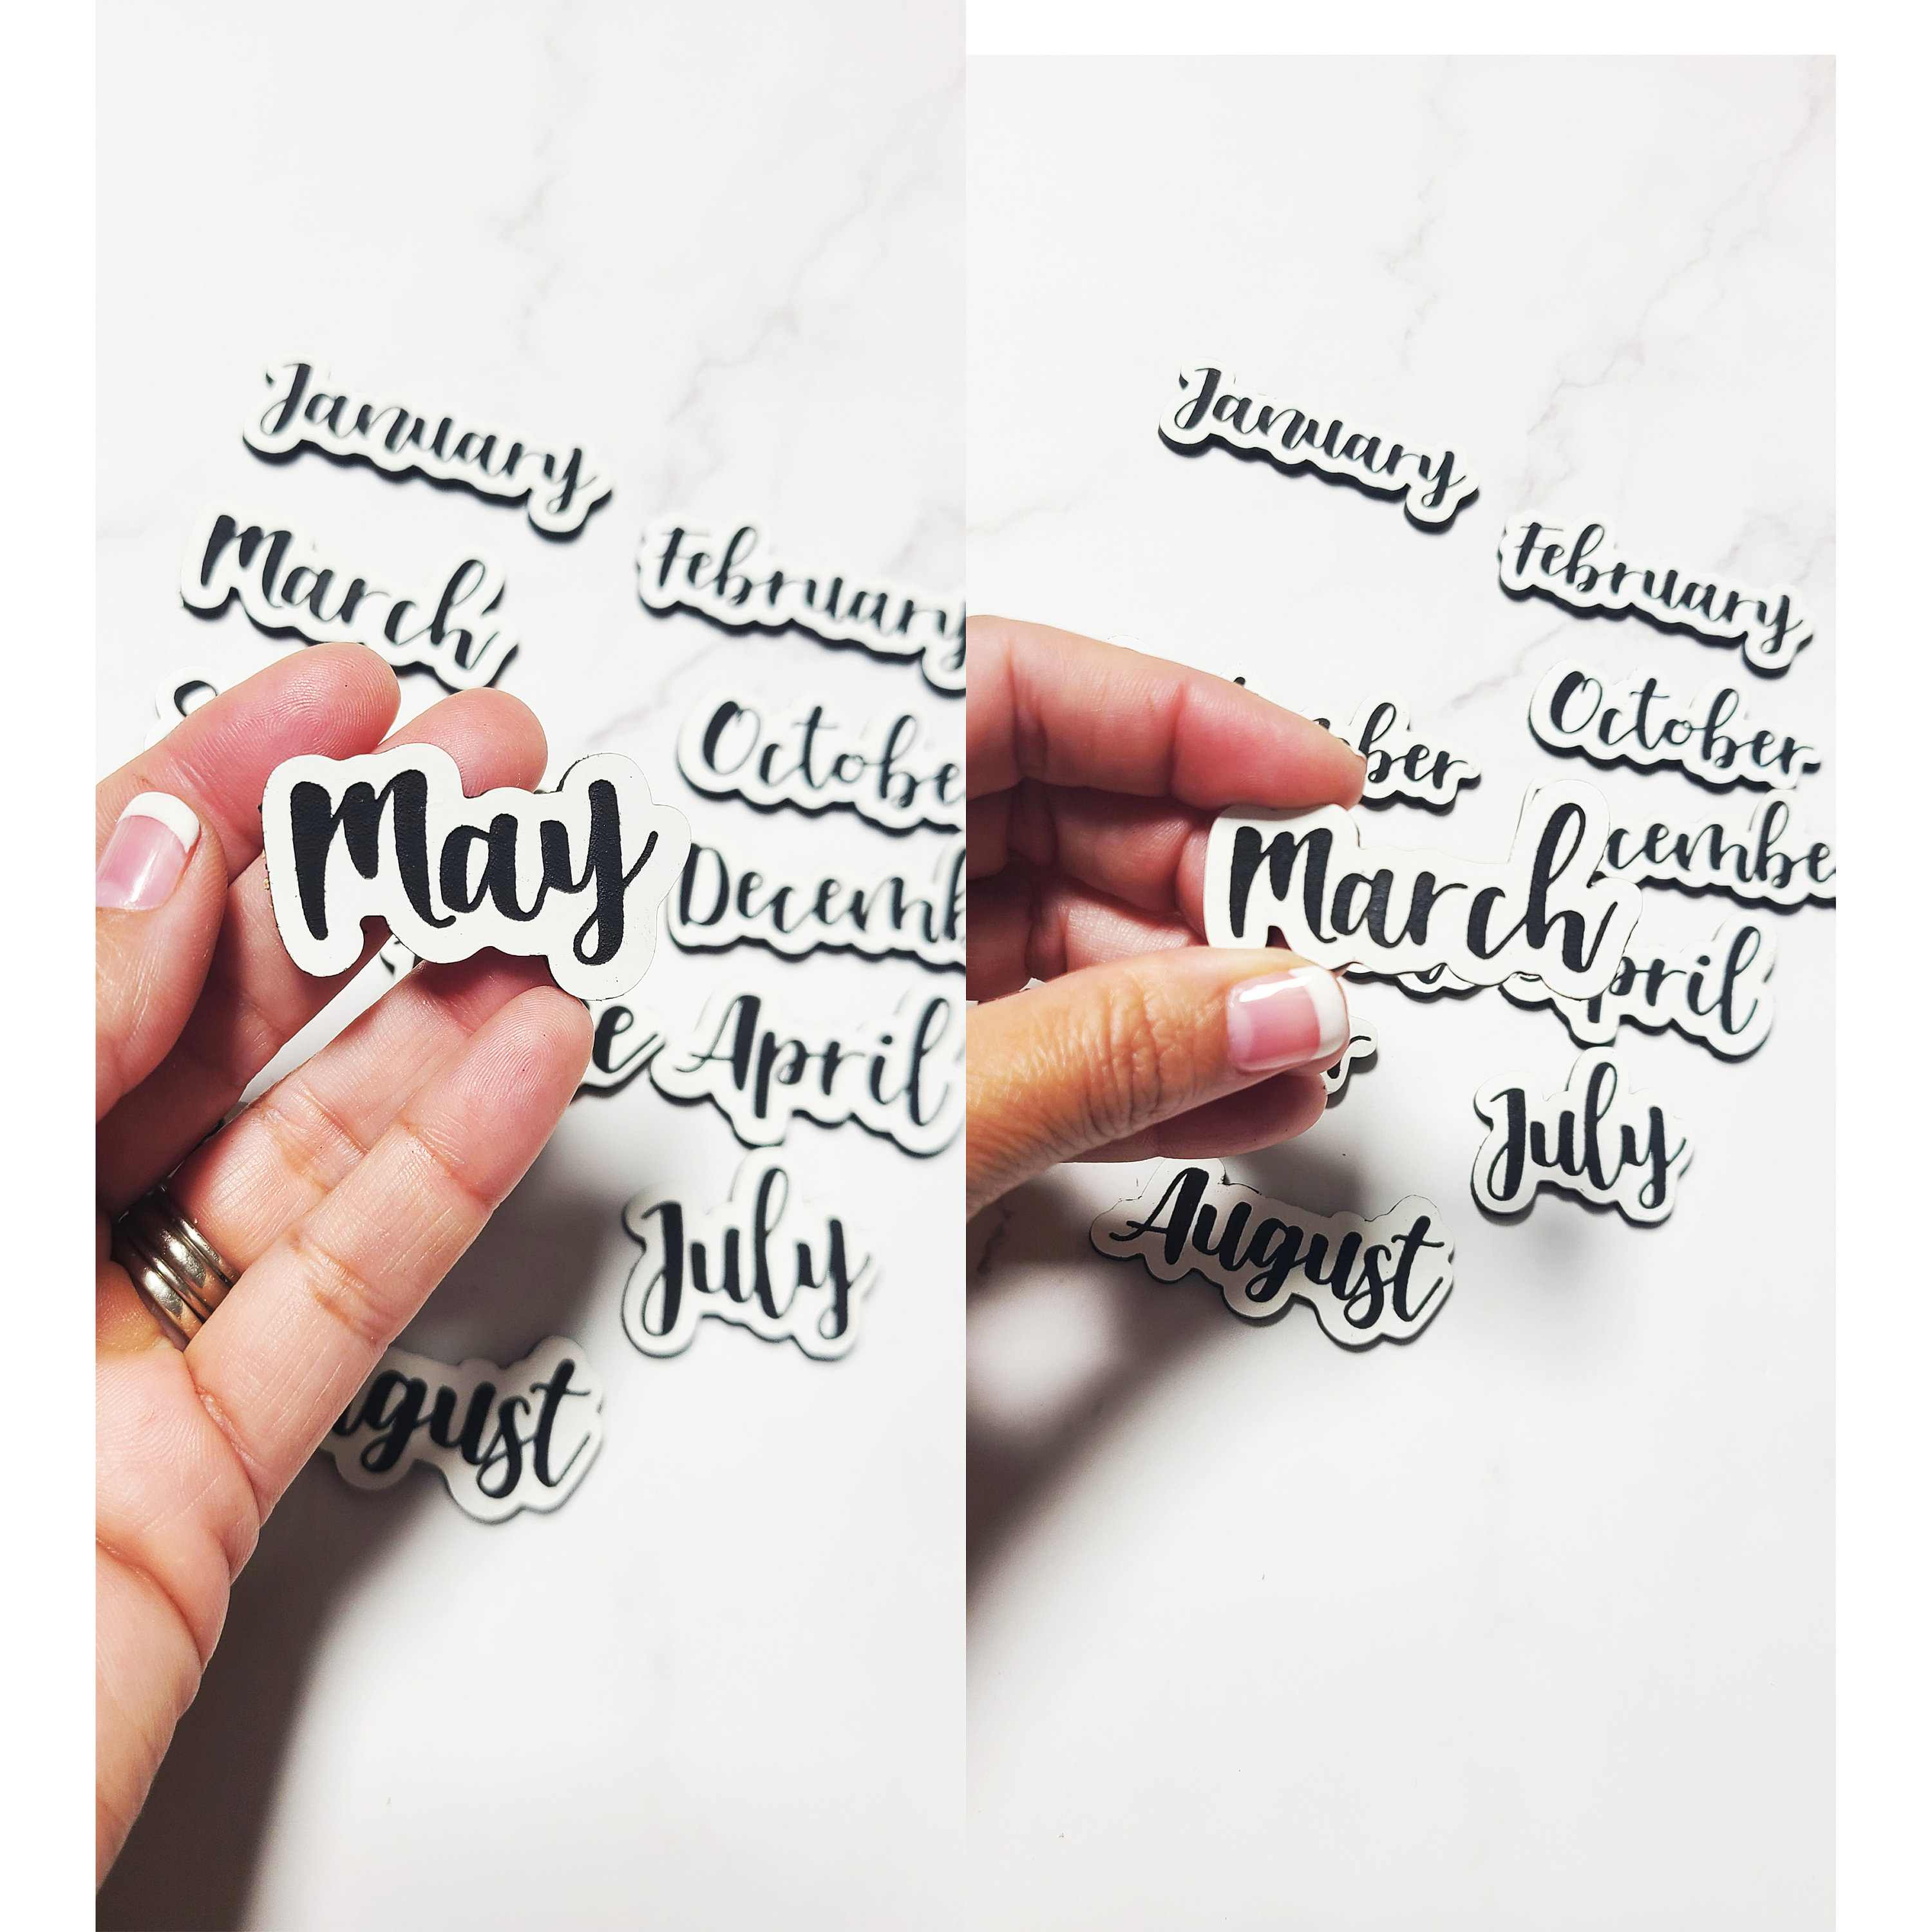 January
March
February
October
May
December
April
July
August
January
February
October
March
April
July
August